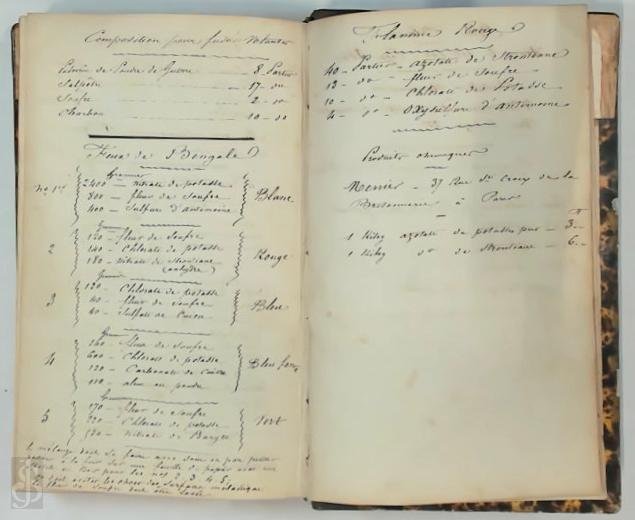 Composition pour fusées volantes
Pulvérin de Poudre de Guerre 8 Parties
Salpêtre 17 - do
Soufre 2 - do
Charbon 10 - do
Feux de Bengale
Grammes
No 1er 2400 - nitrate de potasse
800 - fleur de soufre Blanc
400 - Sulfure d'antimoine
Gram
120 - fleur de soufre
2 140 - Chlorate de potasse Rouge
180 - nitrate de Strontiane
(anhydre)
Gram
120 - Chlorate de potasse
3 40 - fleur de soufre Bleu
40 - Sulfate de Cuivre
Gram
160 - fleur de soufre
4 600 - Chlorate de potasse
120 - Carbonate de Cuivre Bleu foncé
110 - alun en poudre
Gram
170 - fleur de soufre
5 220 - Chlorate de potasse Vert
520 - nitrate de Baryte
le mélange doit se faire avec
sur une feuille de papier avec une
pour les nos 2, 3, 4, 5,
éviter les chocs des surfaces métalliques
la fleur de soufre doit être
Flamme Rouge
40 - Parties - azotate de Strontiane
13 - do - fleur de Soufre
10 - do - Chlorate de Potasse
4 - do - Oxysulfure d'antimoine
Produits chimiques
Menier - 37 Rue Ste Croix de la
Bretonnerie à Paris
1 Kilog azotate de potasse pur - 3 -
1 Kilog do de Strontiane - 6 -